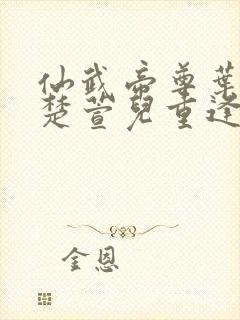 仙武帝尊葉
楚萱兒重逢
金恩